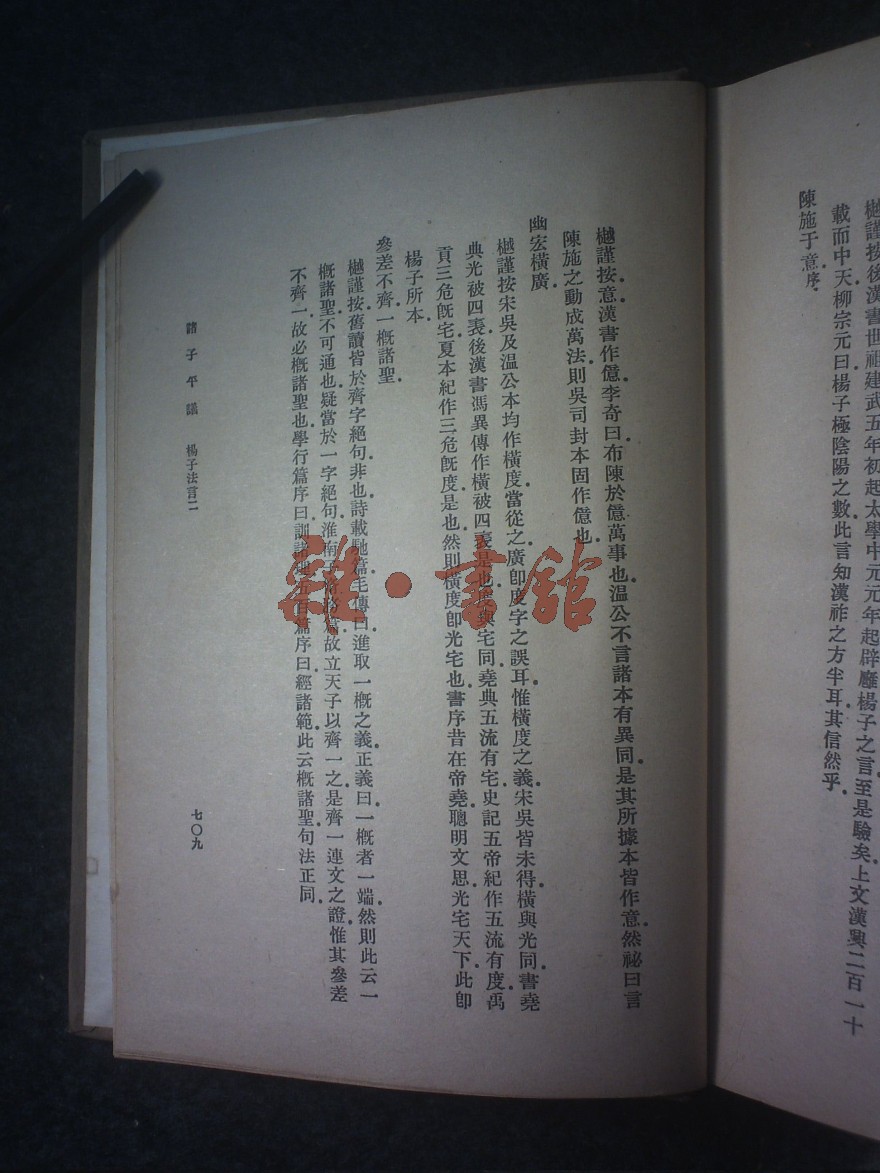 樾謹按後漢書世祖建武五年初起太學中元元年起辟廱楊子之言至是驗矣上文漢興二百一十
載而中天柳宗元曰楊子極陰陽之數此言知漢祚之方半耳其信然乎
陳施于意序
樾謹按意漢書作億李奇曰布陳於億萬事也溫公不言諸本有異同是其所據本皆作意然祕曰言
陳施之動成萬法則吳司封本固作億也
幽宏橫廣
樾謹按宋吳及温公本均作橫度當從之廣卽度字之誤耳惟橫度之義宋吳皆未得橫與光同書堯
典光被四表後漢書馮異傳作橫被四表是也度與宅同堯典五流有宅史記五帝紀作五流有度禹
貢三危旣宅夏本紀作三危旣度是也然則橫度卽光宅也書序昔在帝堯聰明文思光宅天下此卽
楊子所本
參差不齊一概諸聖
樾謹按舊讀皆於齊字絕句非也詩載馳篇毛傳曰進取一概之義正義曰一概者一端然則此云一
概諸聖不可通也疑當於一字絕句淮南子篇故立天子以齊一之是齊一連文之證惟其參差
不齊一故必概諸聖也學行篇序曰訓諸理五百篇序曰經諸範此云概諸聖句法正同
諸子平議 楊子法言二
七〇九
雜·書館